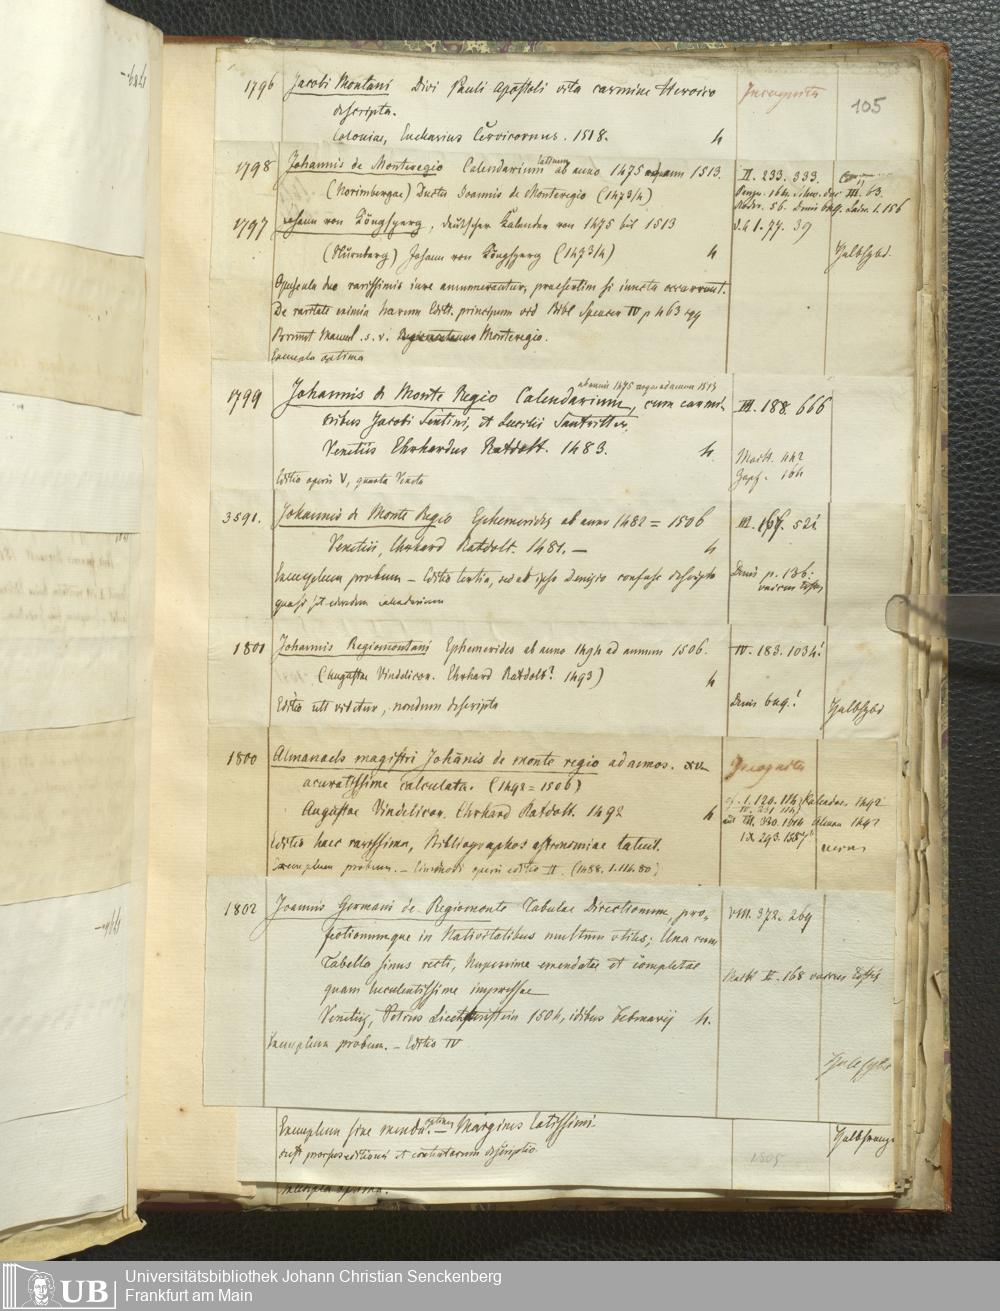 105
1796 Jacobi Montani Divi Pauli Apostoli vita carmine Heroico Incognita
descripta.
Coloniae, Eucharius Cervicornus. 1518. 4
1798 Johannis de Monteregio Calendarium latinum ab anno 1475 ad annum 1513. II. 233. 333.
(Norimbergae) Ductu Joannis de Monteregio (1473/4) Panzer. 164. III. 63.
56. Denis Lair. 1. 156
1797 Johann von Köngsperg, deutscher Kalender von 1475 bis 1513 77. 39
(Nürnberg) Johann von Köngsperg (1473/4) 4 Halbfzbd.
Opuscula duo rarissimis iure annumerantur, praesertim si iuncta occurrunt.
De raritate eximia harum Editt. principum vid Bibl Spencer IV p 463 sqq
Brunet Manuel. s. v. Monteregio.
Exempla optima
1799 Johannis de Monte Regio Calendarium, cum carmi- III. 188. 666
ab anno 1475 usque ad annum 1513
nibus Jacobi Sentini, et Lucilii Santritter.
Venetiis Ehrhardus Ratdolt. 1483. 4 Maitt. 442
Editio operis V, quarta Veneta Zapf. 164
3591. Johannis de Monte Regio Ephemerides ab anno 1482 = 1506 III. 167. 521
Venetiis, Ehrhard Ratdolt. 1481. — 4
Exemplum probum — Editio tertia, sed ab ipso Denisio confuse descripta Denis p. 136:
quasi sit eiusdem calendarium
1801 Johannis Regiomontani Ephemerides ab anno 1494 ad annum 1506. IV. 183. 1034!
(Augustae Vindelicor. Ehrhard Ratdolt? 1493) 4
Editio uti videtur, nondum descripta Denis Halbfzbd
1800 Almanach magistri Johānis de monte regio ad annos. xv Incognita
acuratissime calculata. (1492 = 1506) cf. I. 120. 114; Kalendar. 1492
IV. 231
Augustae Vindelicor. Ehrhard Ratdolt. 1492 4 III. 330. Alman 1492
IX 293. 1557
Editio haec rarissima, Bibliographos astronomiae latuit.
Exemplum probum. — Eiusmodi operis editio II. (1488. I. 114. 80)
1802 Joannis Germani de Regiomonte Tabulae Directionum, pro- VIII. 372. 269
fectionumque in Nativitatibus multum utiles; Una cum
Tabella sinus recti, Nuperrime emendatae et completae Maitt II. 168
quam luculentissime impressae
Venetiis, Petrus Liechtenstein 1504, idibus Februarij 4.
Exemplum probum. — Editio IV
Exemplum sine menda. optimum — Marginis latissimi Halbfranz
1805
et contentorum descriptio
Exempla optima.
UB
Universitätsbibliothek Johann Christian Senckenberg
Frankfurt am Main